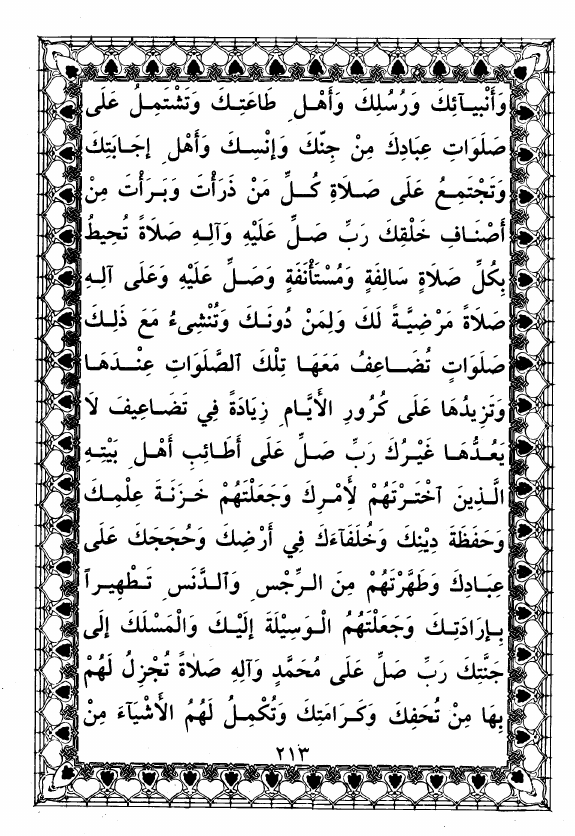 وَأَنْبِيَـآئِكَ وَرُسُلِكَ وَأَهْـلِ طَاعَتِـكَ وَتَشْتَمِـلُ عَلَى
صَلَوَاتِ عِبَادِكَ مِنْ جِنِّكَ وَإِنْسِـكَ وَأَهْلِ إِجَـابَتِكَ
وَتَجْتَمِـعُ عَلَى صَـلَاةِ كُـلِّ مَنْ ذَرَأْتَ وَبَـرَأْتَ مِنْ
أَصْنَـافِ خَلْقِكَ رَبِّ صَـلِّ عَلَيْهِ وَآلِـهِ صَلَاةً تُحِيطُ
بِكُلِّ صَلَاةٍ سَالِفَةٍ وَمُسْتَأْنَفَةٍ وَصَـلِّ عَلَيْهِ وَعَلَى آلِـهِ
صَلَاةً مَرْضِيَّـةً لَكَ وَلِمَنْ دُونَـكَ وَتُنْشِىءُ مَعَ ذَلِـكَ
صَلَوَاتٍ تُضَـاعِفُ مَعَهَـا تِلْكَ ٱلصَّلَوَاتِ عِنْـدَهَـا
وَتَزِيدُهَا عَلَى كُرُورِ الأَيَّـامِ زِيَادَةً فِي تَضَـاعِيفَ لَا
يَعُـدُّهَـا غَيْرُكَ رَبِّ صَلِّ عَلَى أَطَائِبِ أَهْـلِ بَيْتِـهِ
الَّـذِينَ ٱخْتَـرْتَهُمْ لأَمْـرِكَ وَجَعَلْتَهُمْ خَـزَنَـةَ عِلْمِـكَ
وَحَفَظَةَ دِيْنِكَ وَخُلَفَآءَكَ فِي أَرْضِكَ وَحُجَجَكَ عَلَى
عِبَـادِكَ وَطَهَّرْتَهُمْ مِنَ الـرِّجْسِ وَٱلـدَّنَسِ تَـطْهِيـراً
بِـإِرَادَتِـكَ وَجَعَلْتَهُمُ الْـوَسِيْلَةَ إِلَيْـكَ وَالْمَسْلَكَ إِلَى
جَنَّتِكَ رَبِّ صَلِّ عَلَى مُحَمَّدٍ وَآلِهِ صَلاَةً تُجْزِلُ لَهُمْ
بِهَا مِنْ تُحَفِكَ وَكَـرَامَتِكَ وَتُكْمِلُ لَهُمُ الأَشْيَآءَ مِنْ
٢١٣